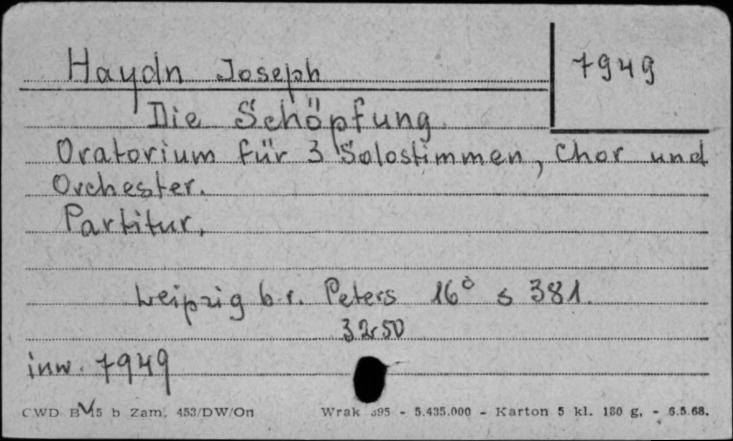 Haydn Joseph
7949
Die Schöpfung
Oratorium für 3 Solostimmen, Chor und
Orchester.
Partitur.
Leipzig b.r. Peters 16° s 381.
inw. 7949
CWD B 15 b Zam. 453/DW/On Wrak 595 - 5.435.000 - Karton 5 kl. 180 g. - 6.5.68.